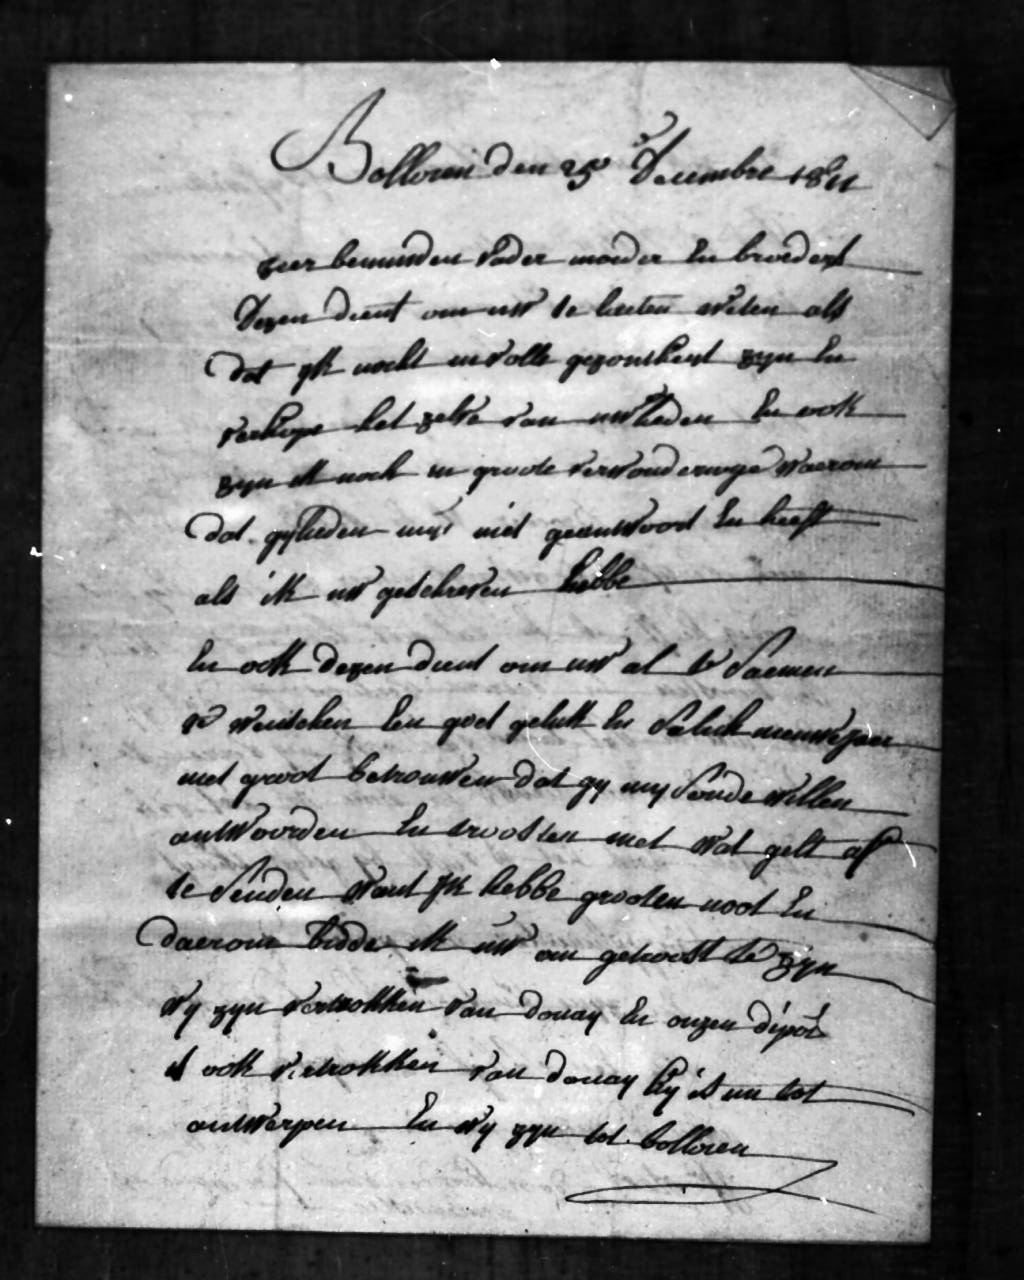 Bolloren den 25 Decembre 1811
zeer beminden vader moeder En broeders
Dezen dient om uw te laeten weten als
dat yk nocht in volle gezontheyt zyn En
verhope het zelve van uw lieden En ook
zyn ik noch in groote verwonderinge waerom
dat gylieden myt niet geantwoort En heeft
als ik uw geschreven hebbe
En ook dezen dient om uw al te Saemen
te wenschen Een goet geluk En Saluk nieuwejaer
met groot betrouwen dat gy my Soude willen
antwoorden En troosten met wat gelt af
te Senden want yk hebbe grooten noot En
daerom bidde ik uw om getroost te zyn
wy zyn vertrokken van douay En onzen dépôt
is ook vertrokken van douay hy is nu tot
antwerpen En wy zyn tot bolloren